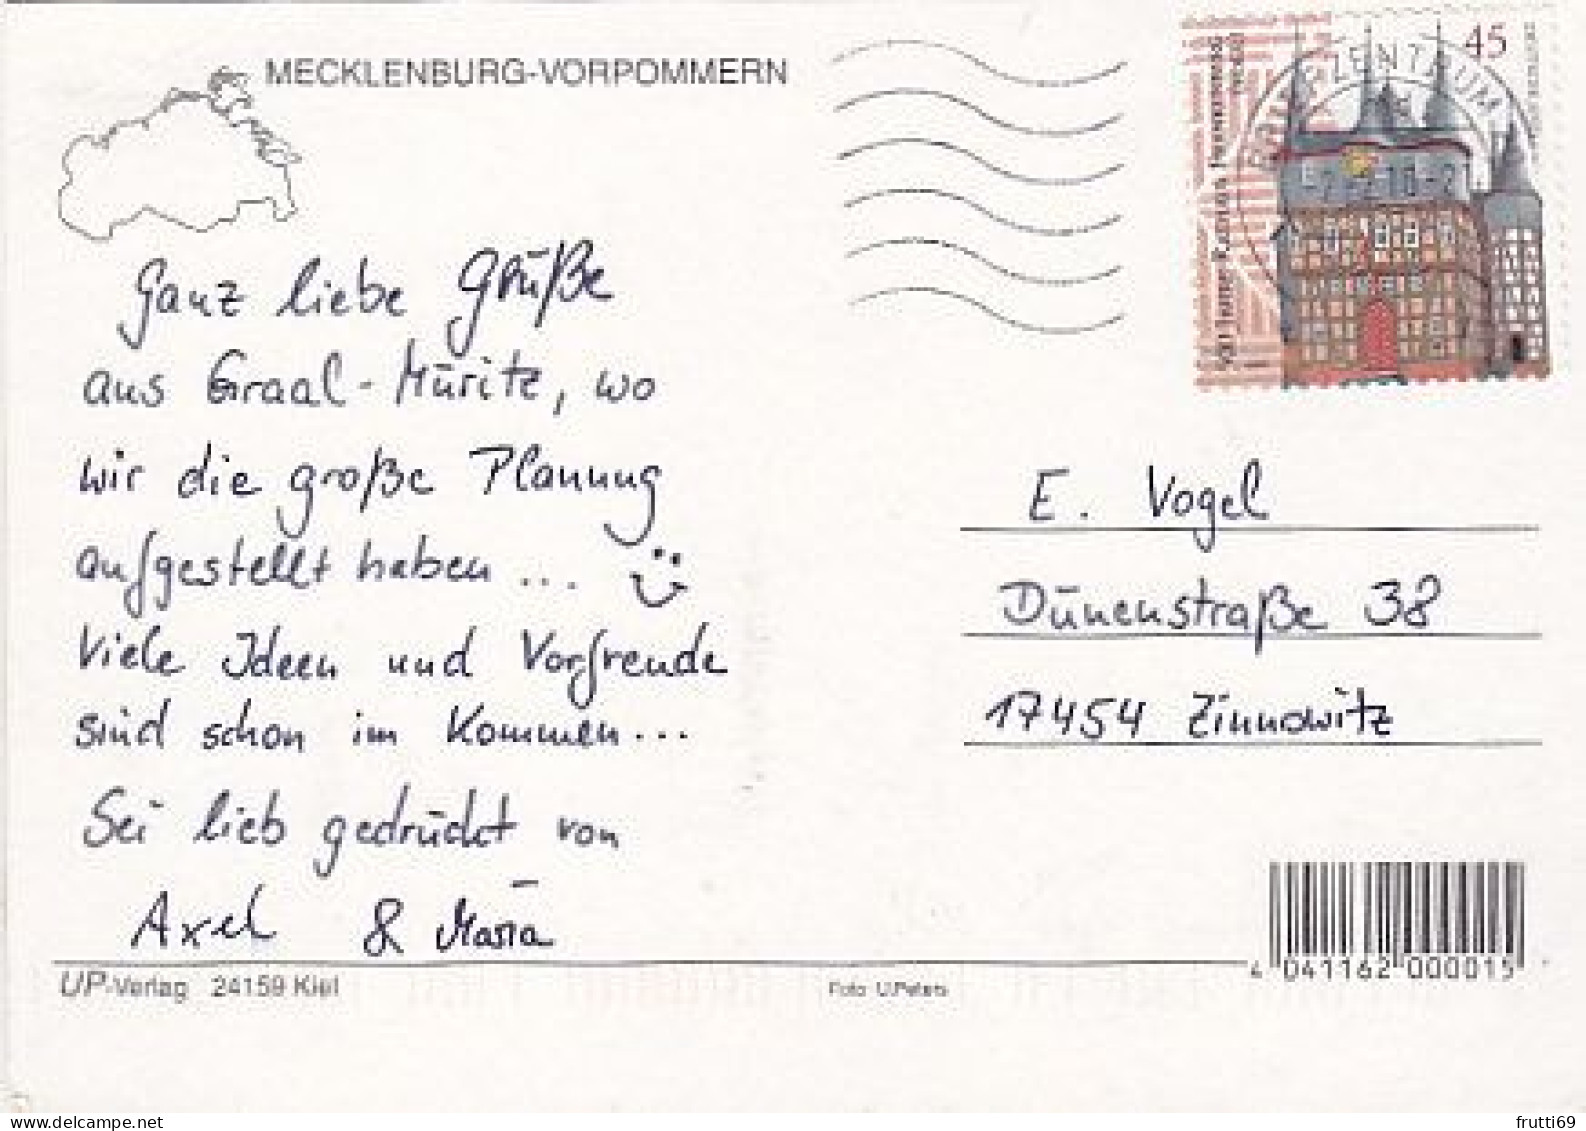 MECKLENBURG-VORPOMMERN
45
BRIEFZENTRUM
500 Jahre Rathaus Frankenberg
Ganz liebe Grüße
aus Graal-Müritz, wo
wir die große Planung
aufgestellt haben ...
Viele Ideen und Vorfreude
sind schon im Kommen...
Sei lieb gedrückt von
Axel & Maria
E. Vogel
Dünenstraße 38
17454 Zinnowitz
UP-Verlag 24159 Kiel
Foto U.Peters
4 041162 000015
frutti69